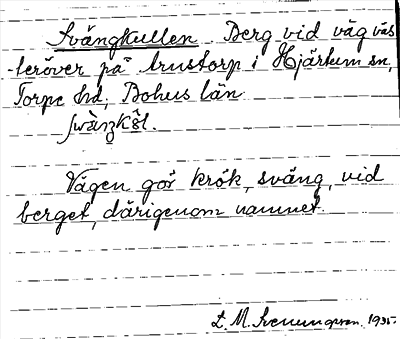 Svängkullen Berg vid väg väs-
teröver på Arustorp i Hjärtum sn,
Torpe hd, Bohus län
Vägen gör krök, sväng, vid
berget, därigenom namnet.
L. M. Svenungsson 1935.